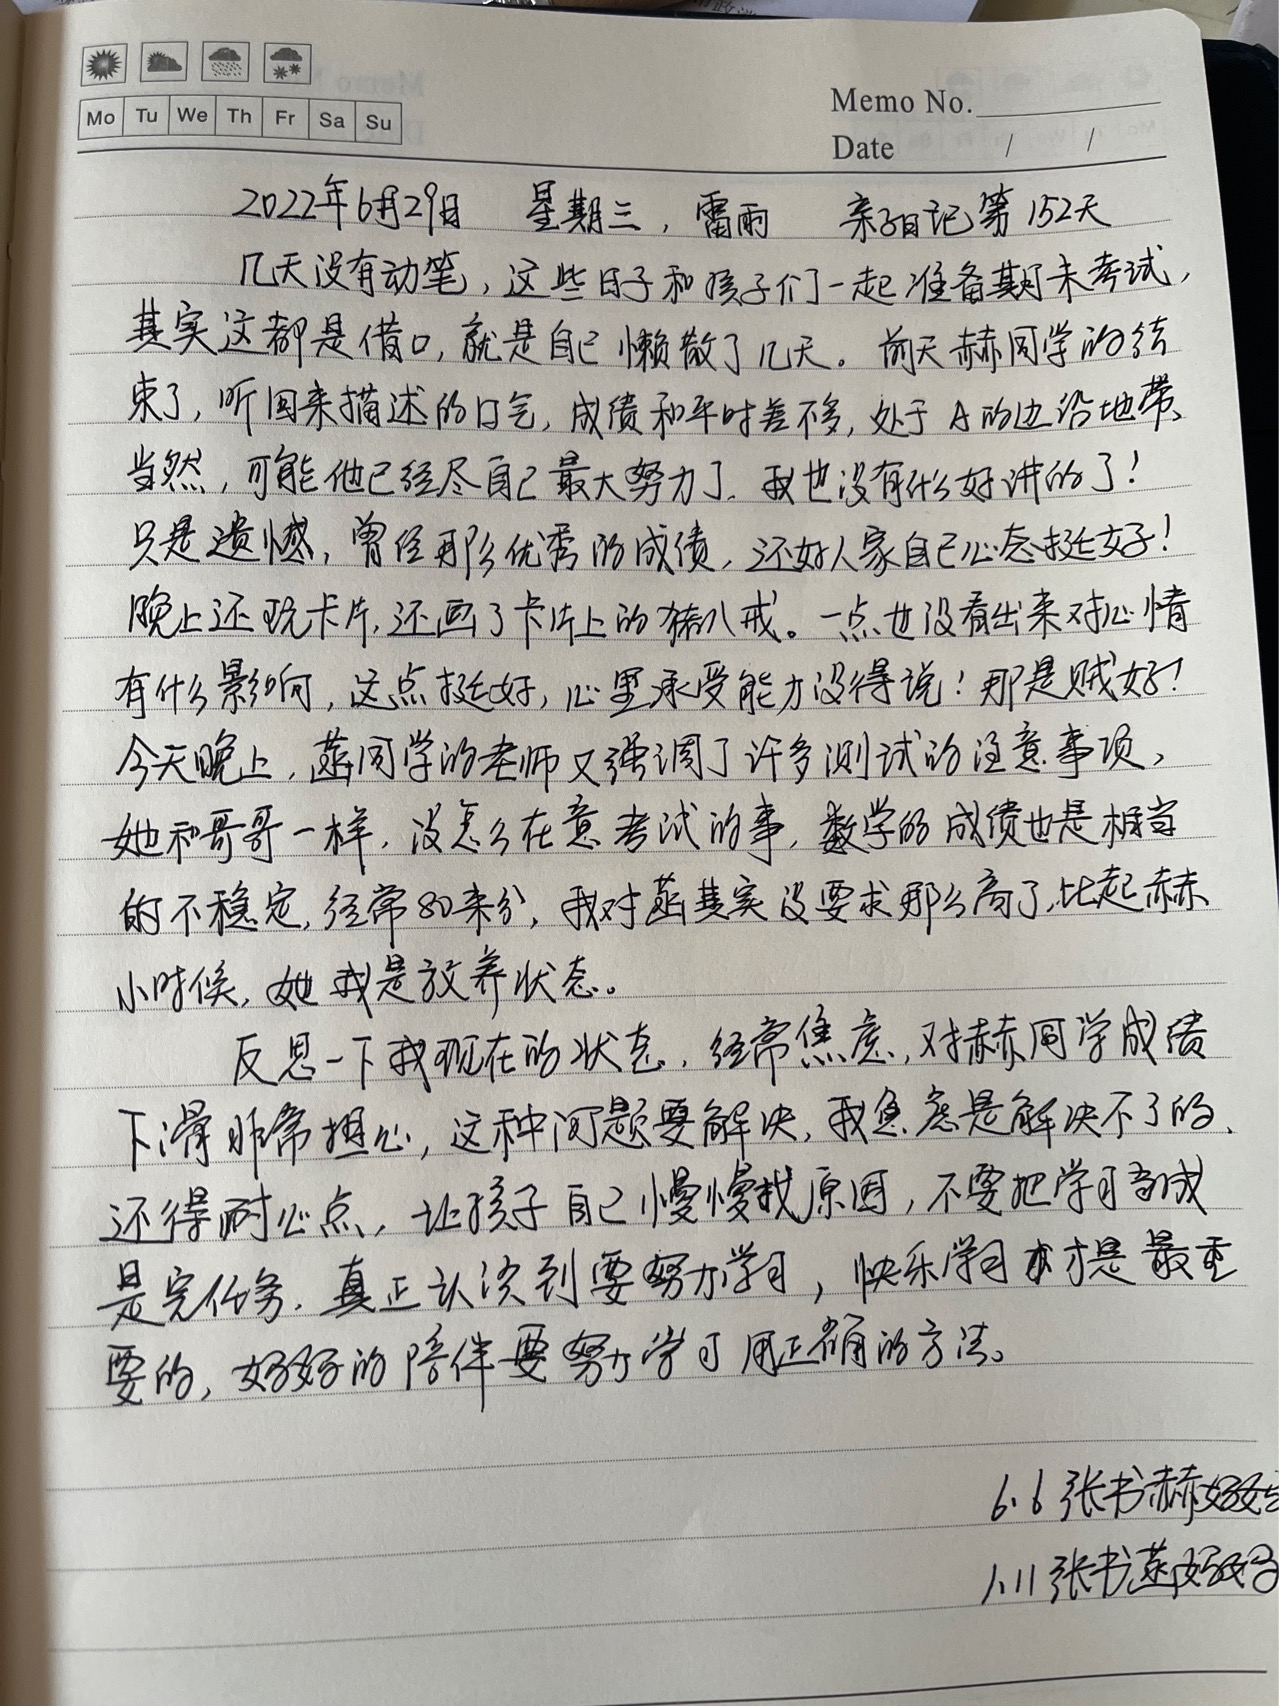 Mo Tu We Th Fr Sa Su
Memo No.
Date / /
2022年6月29日 星期三，雷雨 亲子日记第152天
几天没有动笔，这些日子和孩子们一起准备期末考试，
其实这都是借口，就是自己懒散了几天。前天赫同学的结
束了，听回来描述的口气，成绩和平时差不多，处于A的边沿地带、
当然，可能他已经尽自己最大努力了．我也没有什么好讲的了！
只是遗憾，曾经那么优秀的成绩，还好人家自己心态挺好！
晚上还玩卡片，还画了卡片上的猪八戒。一点也没看出来对心情
有什么影响，这点挺好，心里承受能力没得说！那是贼好！
今天晚上，菡同学的老师又强调了许多测试的注意事项，
她和哥哥一样，没怎么在意考试的事，数学的成绩也是相当
的不稳定，经常80来分，我对菡其实没要求那么高了，比起赫
小时候，她我是放养状态。
反思一下我现在的状态，经常焦虑，对赫同学成绩
下滑非常担心，这种问题要解决，我焦虑是解决不了的、
还得耐心点，让孩子自己慢慢找原因，不要把学习当成
是完任务．真正认识到要努力学习，快乐学习才是最重
要的，好好的陪伴要努力学习用正确的方法。
6.6 张书赫妈妈
1.11 张书菡妈妈